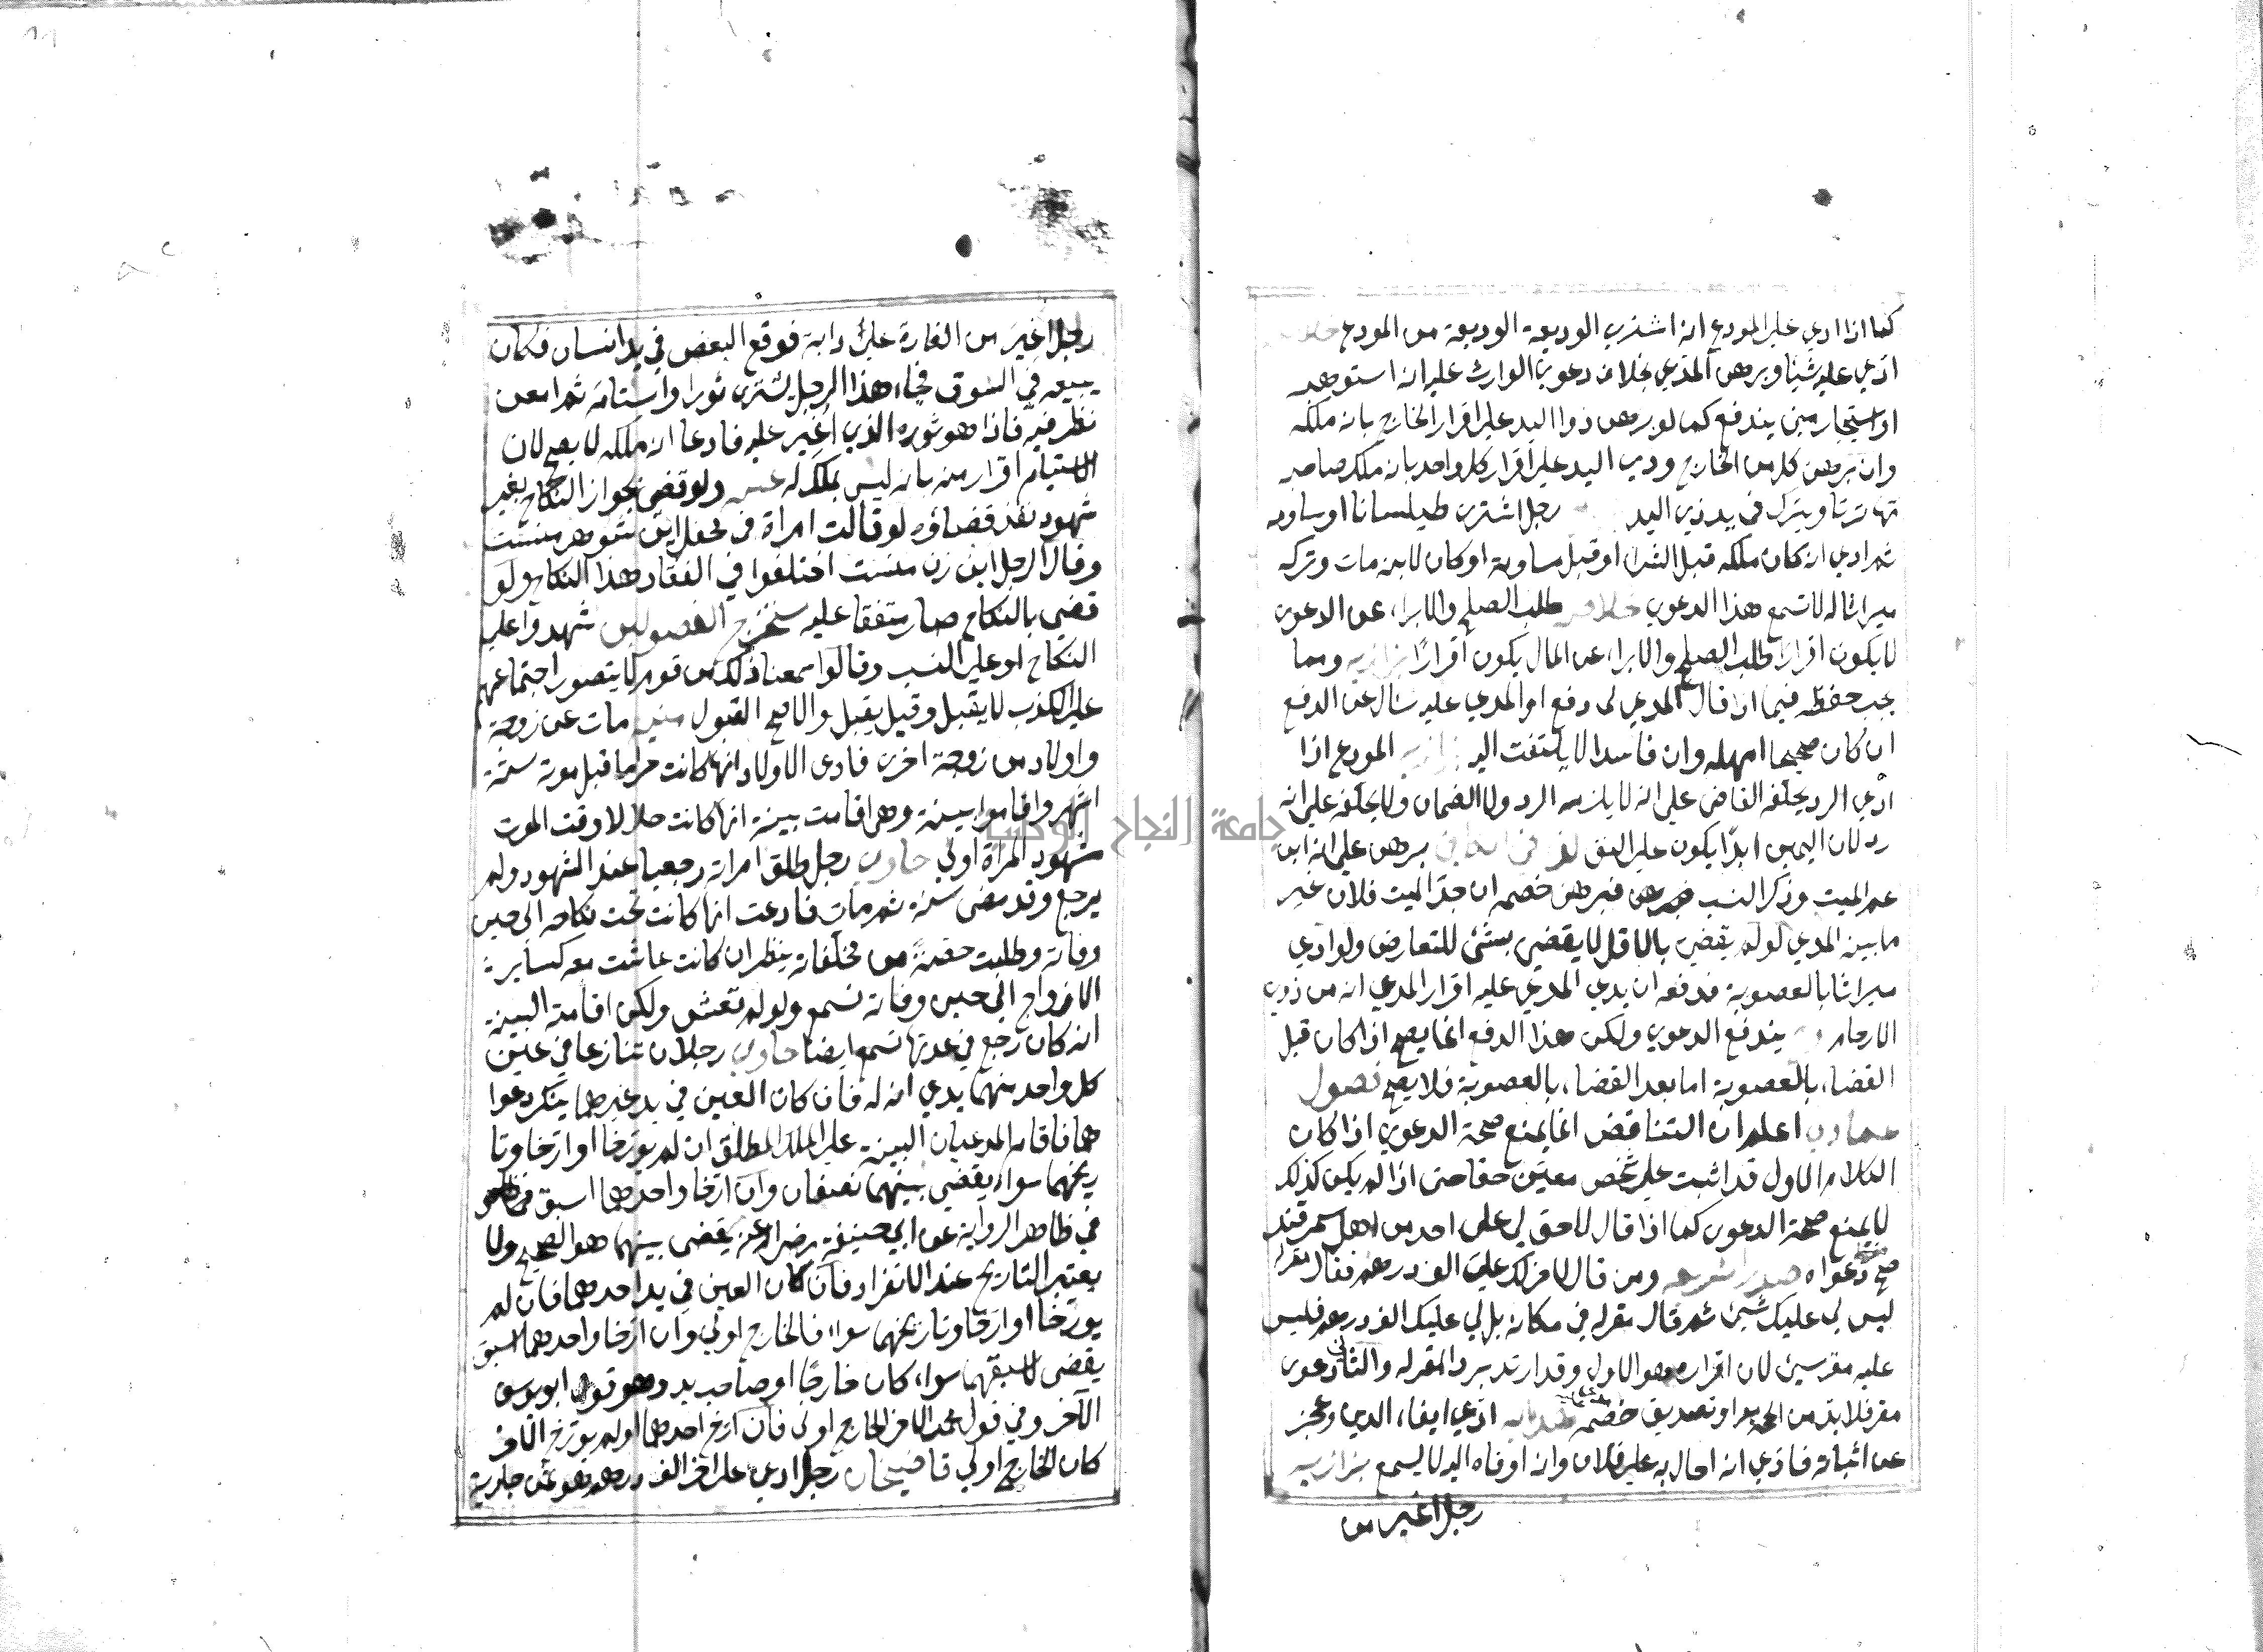 كما اذا ادعي علي المودع انه اشتري الوديعة الوديعة من المودع خلاف
ادعي عليه شيئا وبرهن المدعي بخلاف دعوي الوارث عليه انه استوهبه
او استيجار مني يندفع كما لو برهن ذوا اليد علي اقرار الخارج بانه ملكه
وان برهن كل من الخارج وذي اليد علي اقرار كل واحد بانه ملك صاحبه
تهاترتا ويترك في يد ذي اليد رجل اشتري طيلسانا او ساومه
ثم ادعي انه كان ملكه قبل الشرا او قبل مساومة او كان لابيه مات وتركه
ميراثا له لا تسمع هذا الدعوي خلاصه طلب الصلح والابراء عن الدعوي
لا يكون اقرارا وطلب الصلح والابراء عن المال يكون اقرارًا بزازيه ومما
يجب حفظه فيما اذا قال المدعي لي دفع او المدعي عليه سال عن الدفع
ان كان صحيحا امهله وان فاسدا لا يلتفت اليه بزازيه المودع اذا
ادعي الرد يحلفه القاضي علي انه لا يلزمه الرد ولا الضمان ولا يحلفه علي انه
رد لان اليمين ابدًا يكون علي النفي برهن علي انه ابن
عم الميت وذكر النسب فبرهن خصمه ان جد الميت فلان غير
ما بينه المدعي لو لم يقضي بالاول لا يقضي بشئ للتعارض ولو ادعي
ميراثا بالعصوبة فدفعه ان يدعي المدعي عليه اقرار المدعي انه من ذوي
الارحام يندفع الدعوي ولكن هذا الدفع انما يصح اذا كان قبل
القضاء بالعصوبة اما بعد القضاء بالعصوبة فلا يصح فصول
عمادي اعلم ان التناقض انما يمنع صحة الدعوي اذا كان
الكلام الاول قد اثبت علي شخص معين حقا حتى اذا لم يكن كذلك
لا يمنع صحة الدعوى كما اذا قال لا حق لي على احد من اهل سمرقند
صح دعواه صدر الشريعه ومن قال لاخر لك علي الف درهم فقال مقرله
ليس لي عليك شيئ ثم قال مقرله في مكانه بل لي عليك الف درهم فليس
عليه مقر شيئ لان اقراره هو الاول وقد ارتد برد المقرله والثاني دعوى
مقر فلا بد من الحجة او تصديق خصمه هدايه ادعي ايفاء الدين وعجز
عن اثباته فادعي انه احال به علي فلان وانه اوفاه اليه لا يسمع بزازيه
رجل اغير من
رجل اغير من الغارة علي دابة فوقع البعض في يد انسان فكان
يبيعه في السوق فجاء هذا الرجل يشتري ثورا واستامه ثم امعن
نظر فيه فاذا هو ثوره الذي اغير عليه فادعا انه ملكه لا يصح لان
الاستيام اقرار منه بانه ليس بملك له ولو قضي بجواز النكاح بغير
شهود نفذ قضاؤه لو قالت امراة في محفل اين شوهر منست
وقال الرجل اين زن منست اختلفوا في انعقاد هذا النكاح ولو
قضي بالنكاح صار متفقا عليه شهدوا علي
النكاح او علي النسب وقالوا سمعنا ذلك من قوم لا يتصور اجتماعهم
علي الكذب لا يقبل وقيل يقبل والاصح القبول منيه مات عن زوجة
واولاد من زوجة اخرى فادعى الاولاد انها كانت حرما قبل موته ستة
اشهر واقاموا بينة وهي اقامت بينة انها كانت حلالا وقت الموت
شهود المراة اولي حاوي رجل طلق امراته رجعيا عند الشهود ولم
يرجع وقد مضى سنة ثم مات فادعت انها كانت تحت نكاحه الى حين
وفاته وطلبت حقها من مخلفاته ينظر ان كانت عاشت معه كساير
الازواج الى حين وفاته تسمع ولو لم تعش ولكن اقامة البينة
انه كان رجع في عدتها تسمع ايضا حاوي رجلان تنازعا في عين
كل واحد منهما يدعي انه له فان كان العين في يد غيرهما ينكر دعوا
هما فاقام المدعيان البينة علي الملك المطلق ان لم يورخا او ارخا وتا
ريخهما سواء يقضي بينهما نصفان وان ارخا واحدهما اسبق
في ظاهر الرواية عن ابي حنيفة رضي الله عنه يقضى بينهما هو الصحيح ولا
يعتبر التاريخ عند الانفراد فان كان العين في يد احدهما فان لم
يورخا او ارخا وتاريخهما سواء فالخارج اولي وان ارخا واحدهما اسبق
يقضى لاسبقهما سواء كان خارجًا او صاحب يد وهو قول ابو يوسف
الآخر وفي قول محمد الاخر الخارج اولى فان ارخ احدهما ولم يورخ الاخر
كان الخارج اولي قاضيخان رجل ادعي علي اخر الف درهم هو ثمن جارية
جامعة النجاح الوطنية